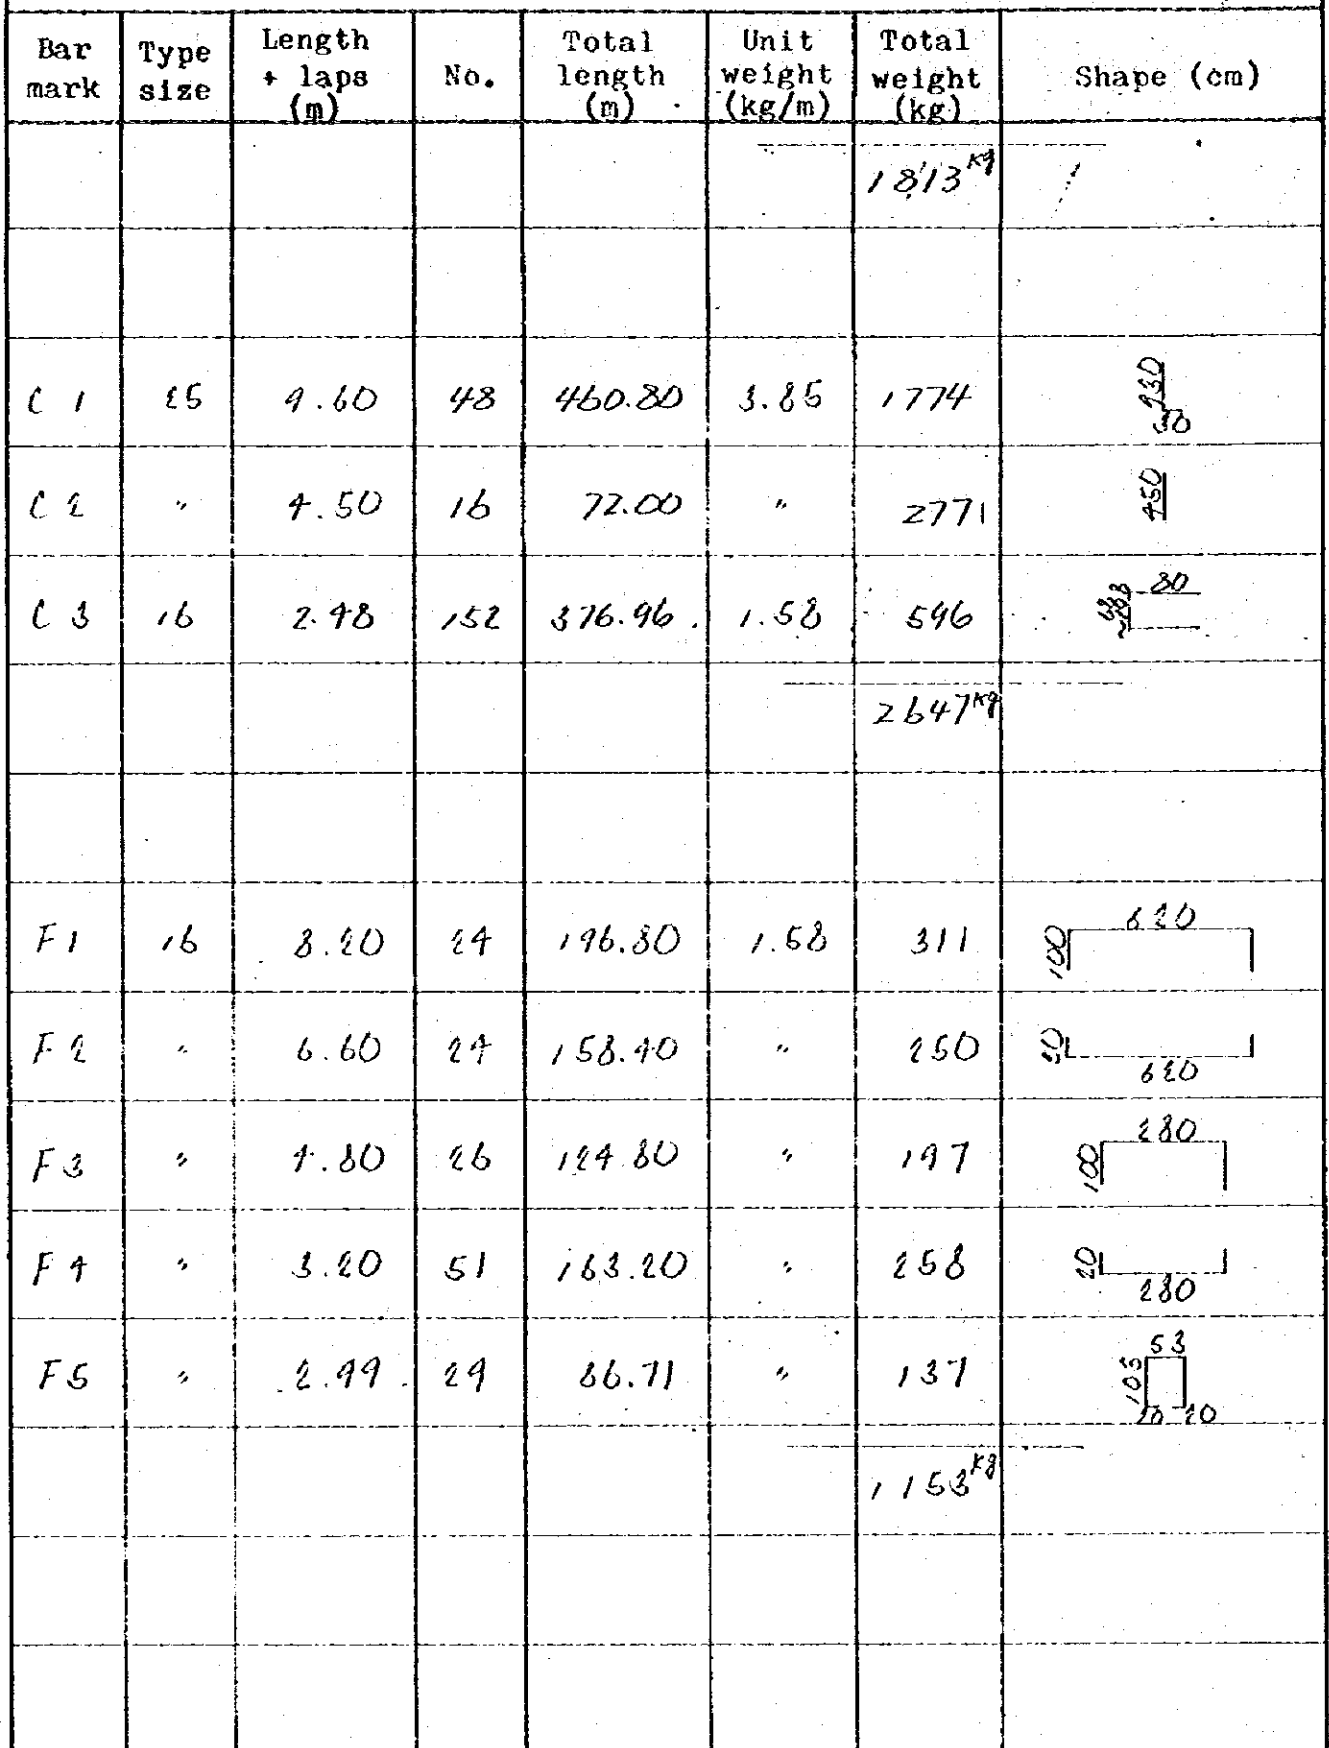 Bar mark | Type size | Length + laps (m) | No. | Total length (m) | Unit weight (kg/m) | Total weight (kg) | Shape (cm)
1813 kg
C 1 | 25 | 9.60 | 48 | 460.80 | 3.85 | 1774 | 930 30
C 2 | " | 4.50 | 16 | 72.00 | " | 277 | 450
C 3 | 16 | 2.48 | 152 | 376.96 | 1.58 | 596 | 80
2647 kg
F 1 | 16 | 8.20 | 24 | 196.80 | 1.58 | 311 | 100 620
F 2 | " | 6.60 | 24 | 158.40 | " | 250 | 20 620
F 3 | " | 4.80 | 26 | 124.80 | " | 197 | 100 280
F 4 | " | 3.20 | 51 | 163.20 | " | 258 | 20 280
F 5 | " | 2.99 | 29 | 86.71 | " | 137 | 103 53 20 20
1153 kg